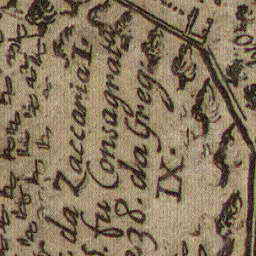 da Zaccaria I.
fu Consagrata
238. da Greg
IX.